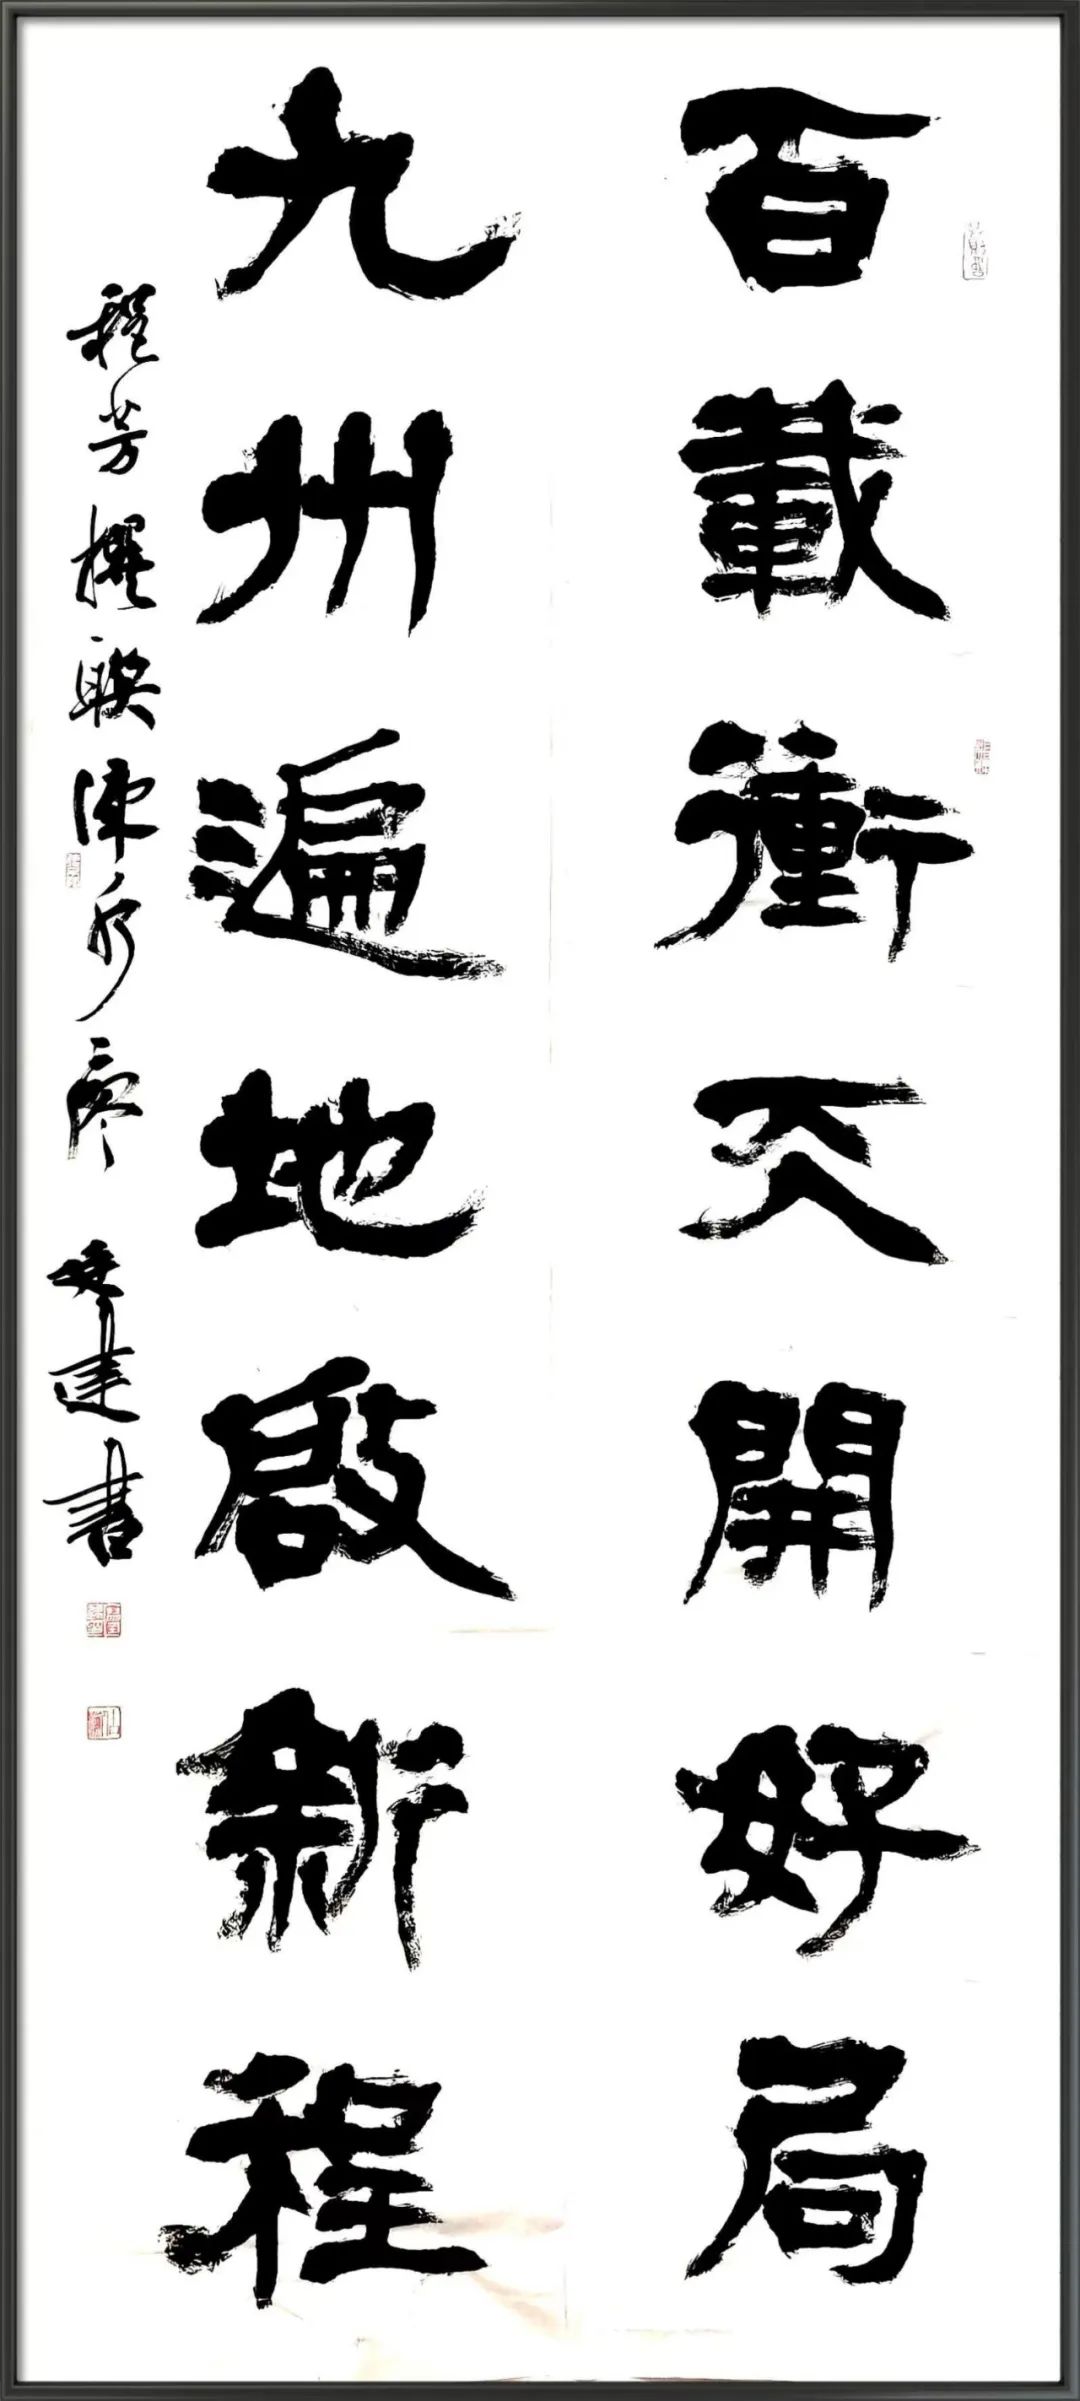 百載衝天開好局
九州遍地啟新程
程芳撰聯 建書